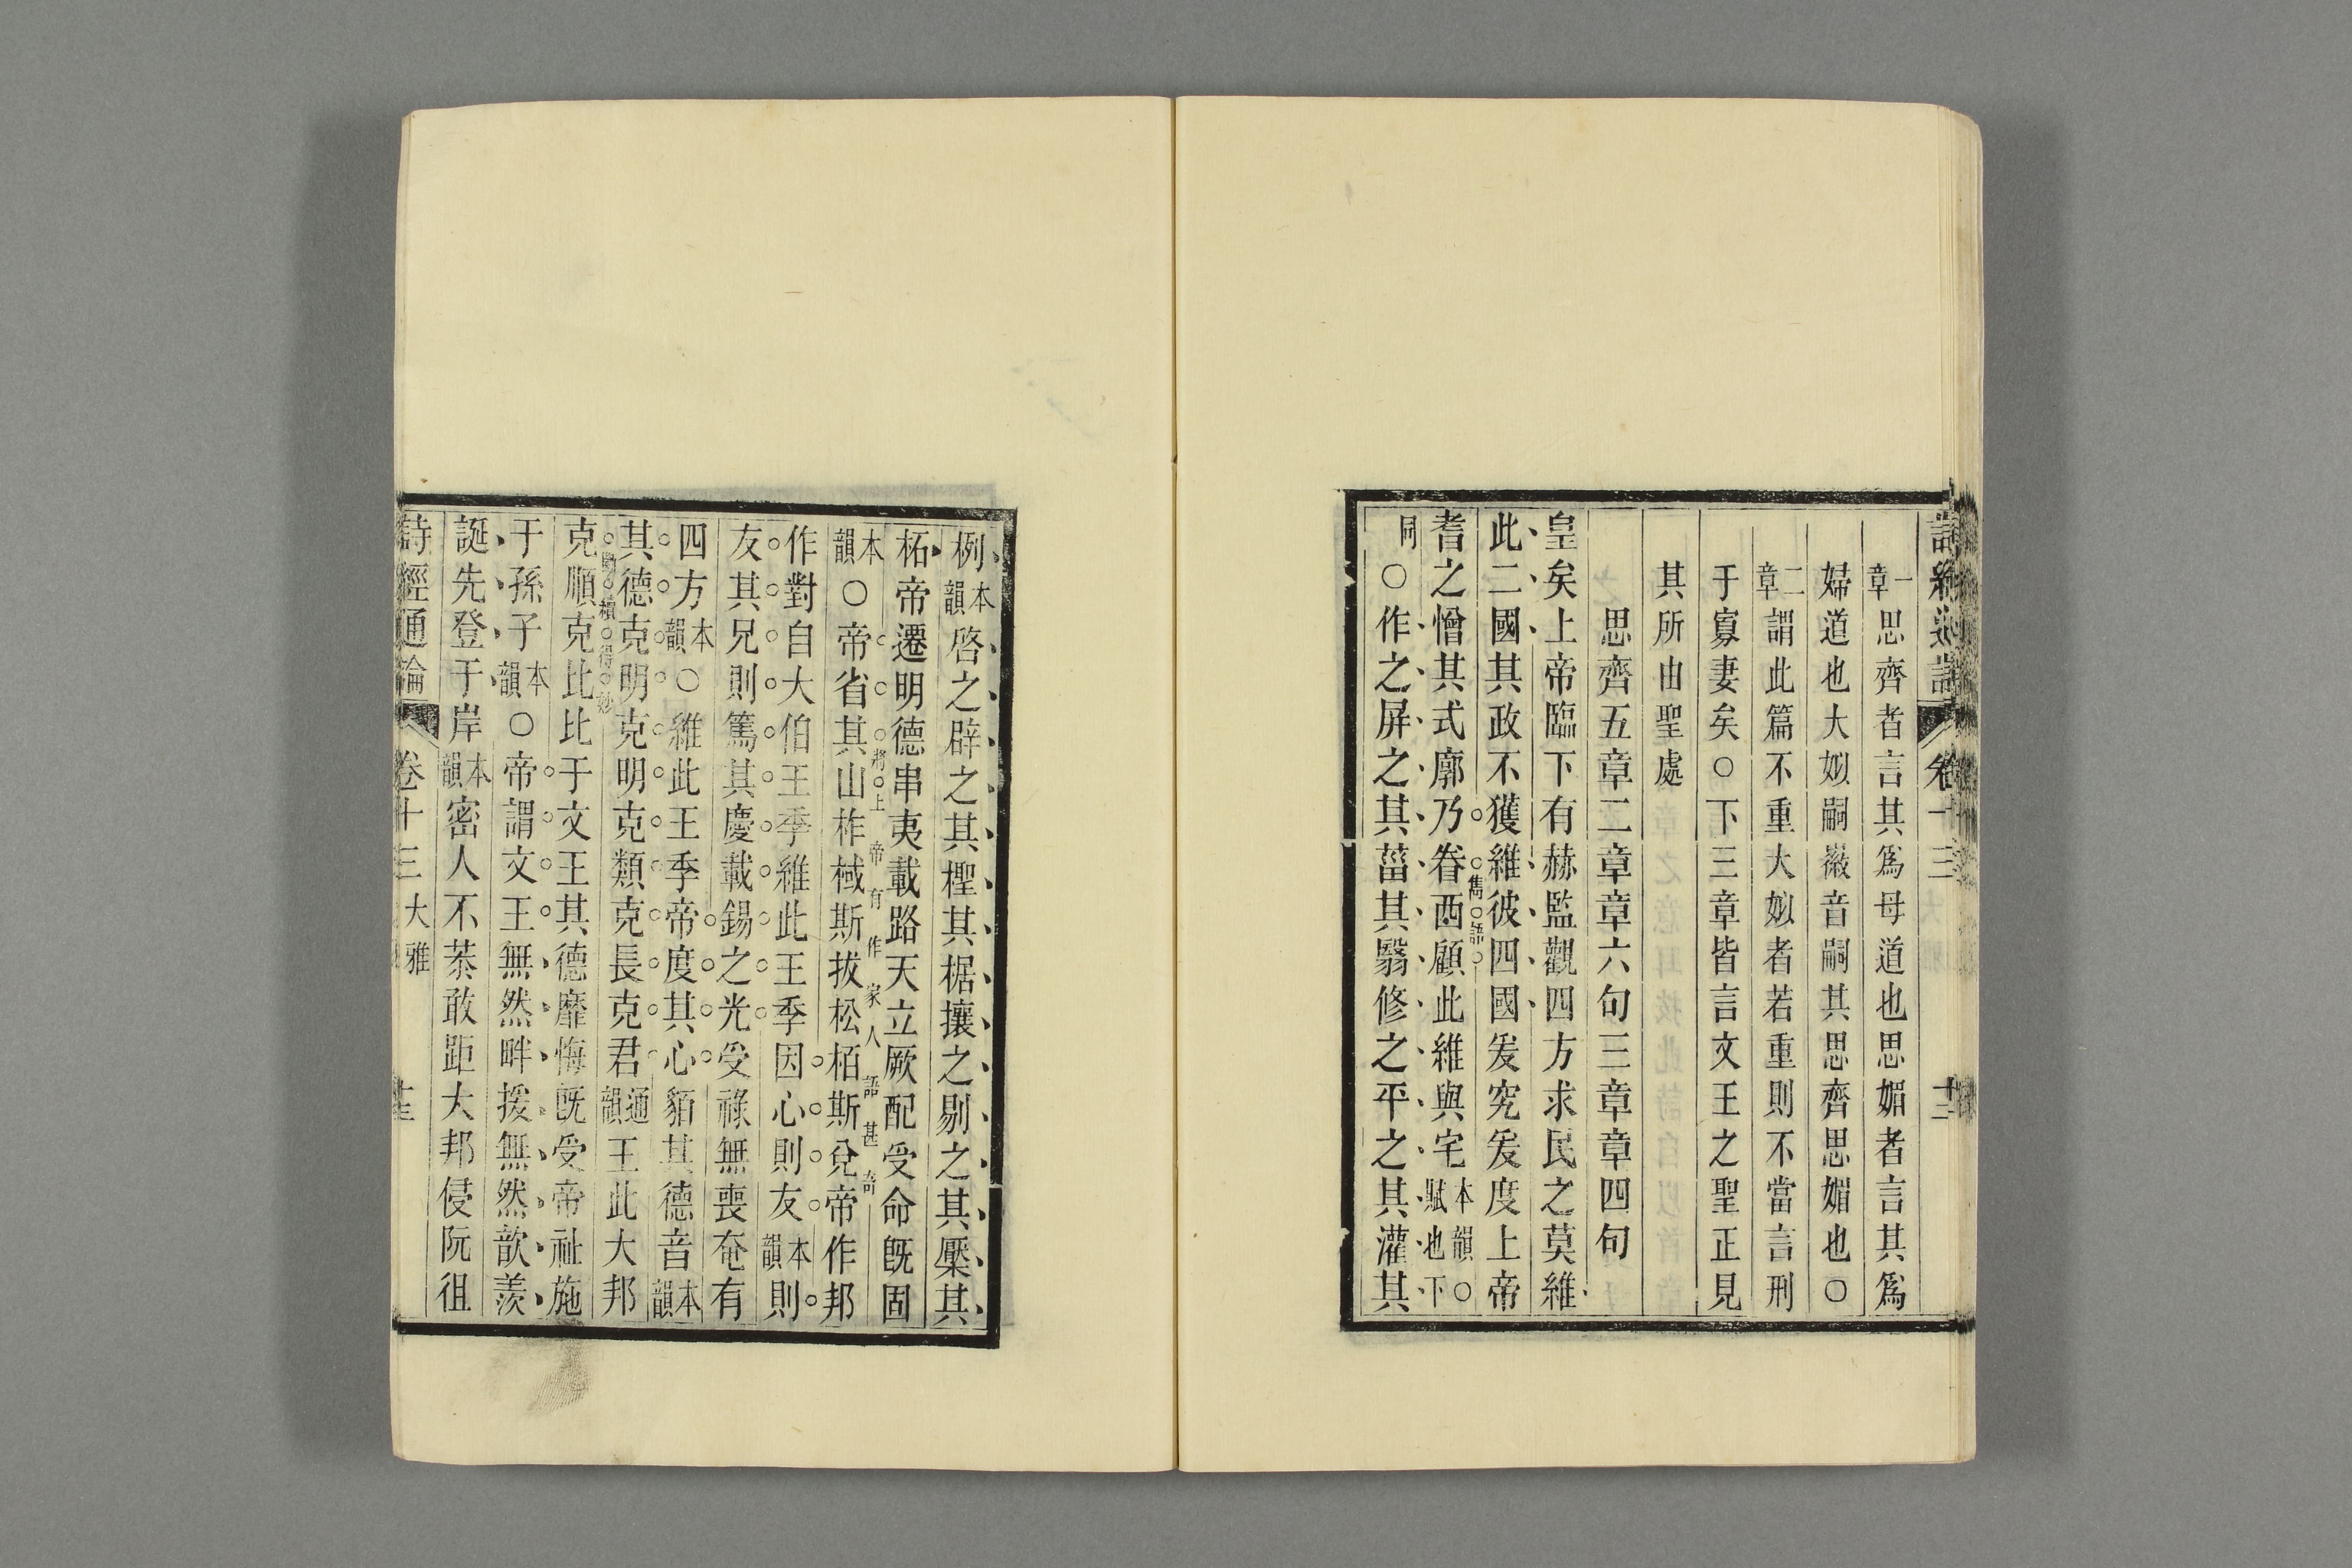 詩經通論 卷十三 十二
一章思齊者言其爲母道也思媚者言其爲
婦道也大姒嗣徽音嗣其思齊思媚也○
二章謂此篇不重大姒者若重則不當言刑
于寡妻矣○下三章皆言文王之聖正見
其所由聖處
思齊五章二章章六句三章章四句
皇矣上帝臨下有赫監觀四方求民之莫維
此二國其政不獲維彼四國爰究爰度上帝
耆之憎其式廓乃眷西顧此維與宅本韻○賦也下
雋語
同○作之屏之其菑其翳修之平之其灌其
栵本韻啓之辟之其檉其椐攘之剔之其檿其
柘帝遷明德串夷載路天立厥配受命旣固
本韻○帝省其山柞棫斯拔松栢斯兌帝作邦
將上帝有作家人語甚奇
作對自大伯王季維此王季因心則友本韻則
友其兄則篤其慶載錫之光受祿無喪奄有
四方本韻○維此王季帝度其心貊其德音本韻
其德克明克明克類克長克君通韻王此大邦
得妙
克順克比比于文王其德靡悔旣受帝祉施
于孫子本韻○帝謂文王無然畔援無然歆羨
誕先登于岸本韻密人不恭敢距大邦侵阮徂
詩經通論 卷十三 大雅 十三